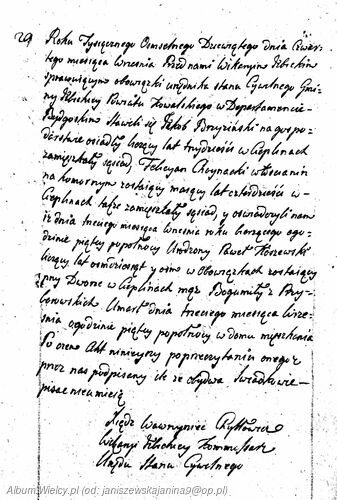 29 Roku Tysiącznego Osmsetnego Dziewiątego dnia Czwar-
tego miesiąca Września Przed nami Wikaryim Izbickim
sprawuiącym obowiązki urzędnika stanu Cywilnego Gmi-
ny Izbickiey Powiatu Kowalskiego w Departamencie
Bydgoskim Stawili się Jakob Bruziński na gospo-
darstwie osiadły liczący lat trzydzieści w Cieplinach
zamieszkały sąsiad, Felicyan Choynacki włościanin
na komornym zostaiący maiący lat czterdzieści w
Cieplinach także zamieszkały sąsiad, y oświadczyli nam
iż dnia trzeciego miesiąca Września roku bieżącego ogo-
dzinie piątey popołudniu Urodzony Paweł
liczący lat ośmdziesiąt y ośm w Obowiązkach zostaiący
przy Dworze w Cieplinach mąż Bogumiły z
Umarł dnia trzeciego miesiąca Wrze-
śnia ogodzinie piątey popołudniu w domu mieszkania
Po czem Akt ninieyszy po przeczytaniu onego
przez nas podpisany iż że obydwa Świadkowie
pisać nieumieią
Xiądz Wawrzyniec
Wikaryi Izbickiey Kommissarz
Urzędu Stanu Cywilnego
Album Wielcy.pl (od: janiszewskajanina9@op.pl)